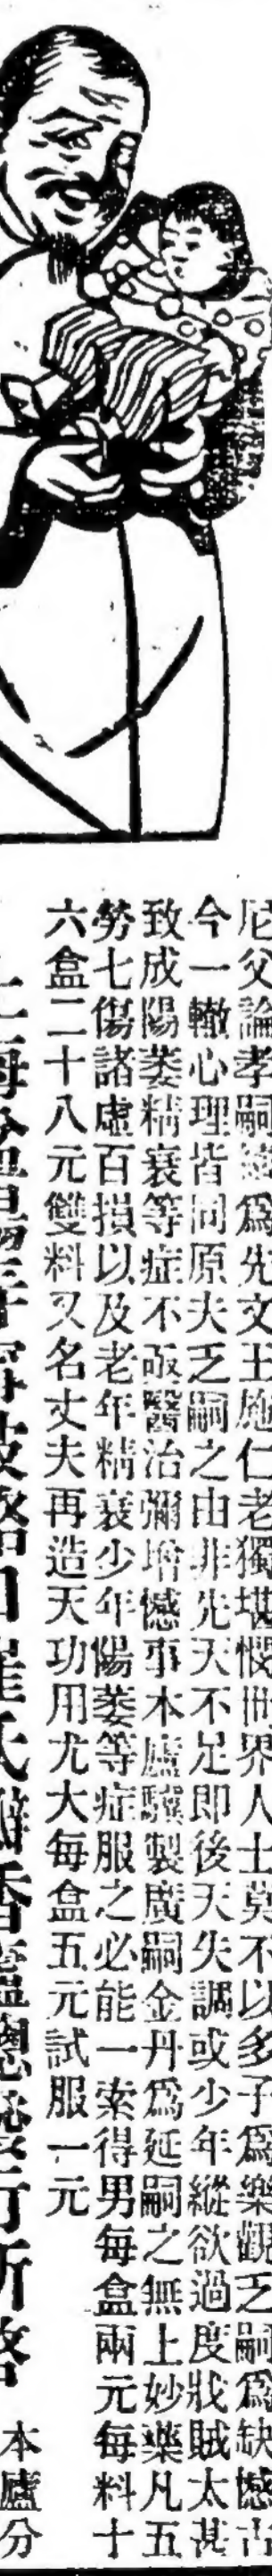 尼父論孝嗣續爲先文王施仁老獨堪憫世界人士莫不以多子爲樂觀乏嗣爲缺憾古
今一轍心理皆同原夫乏嗣之由非先天不足即後天失調或少年縱欲過度戕賊太甚
致成陽萎精衰等症不亟醫治彌增憾事本廬驥製廣嗣金丹爲延嗣之無上妙藥凡五
勞七傷諸虛百損以及老年精衰少年陽萎等症服之必能一索得男每盒兩元每料十
六盒二十八元雙料又名丈夫再造天功用尤大每盒五元試服一元
上海 路口崔氏瓣香廬總發行所啓 本廬分